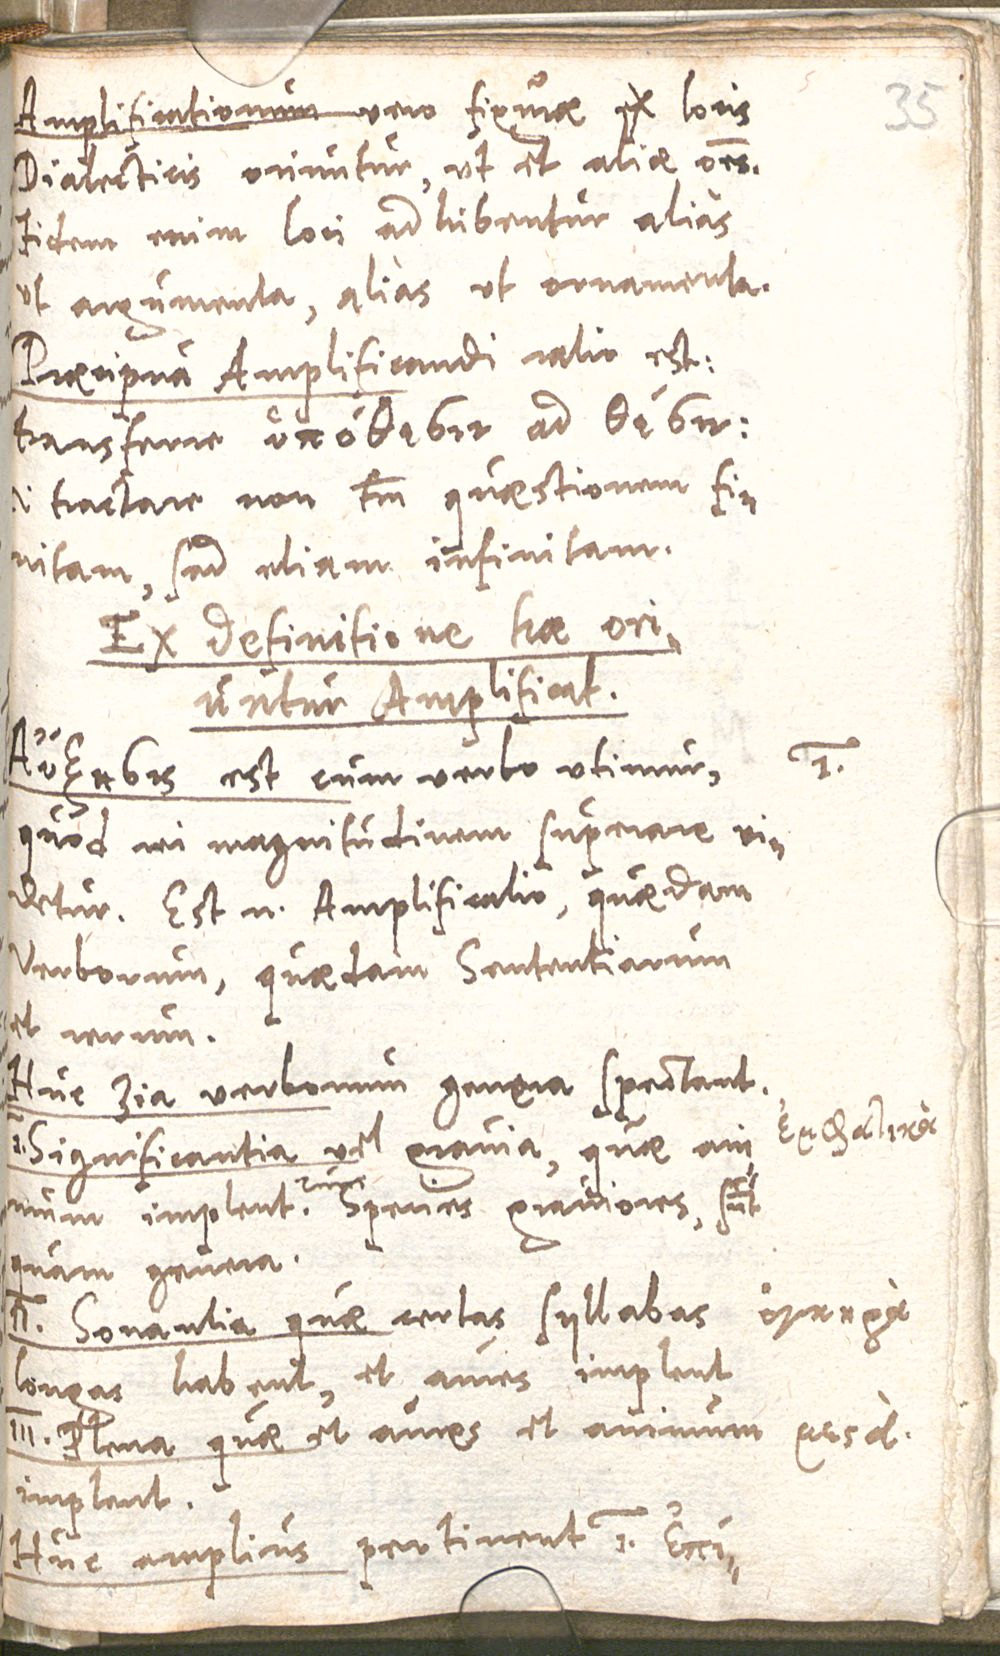 35
Amplificationum vero figuræ ex locis
Dialecticis oriuntur, ut et aliæ oēs.
Iidem enim loci adhibentur aliàs
ut argumenta, aliàs ut ornamenta.
Præcipua Amplificandi ratio est:
transferre ὑπόθεσιν ad θέσιν:
i tractare non tm̄ quæstionem fi„
nitam, sed etiam infinitam.
Ex definitione hæ ori„
untur Amplificat.
Αὔξησις est cum verbo utimur, I.
quod rei magnitudinem superare vi„
detur. Est n. Amplificatio, quædam
Verborum, quædam Sententiarum
et rerum.
Huc 3ia verborum genera spectant.
I. Significantia vel gravia, quæ ani ἐμφατικὰ
mum implent. Species graviores, sunt
quam genera.
II. Sonantia quæ certas syllabas ὀγκηρὰ
longas habent, et aures implent
III. Plena quæ et aures et animum μεσὰ.
implent.
Huc amplius pertinent I. Ἐπι„